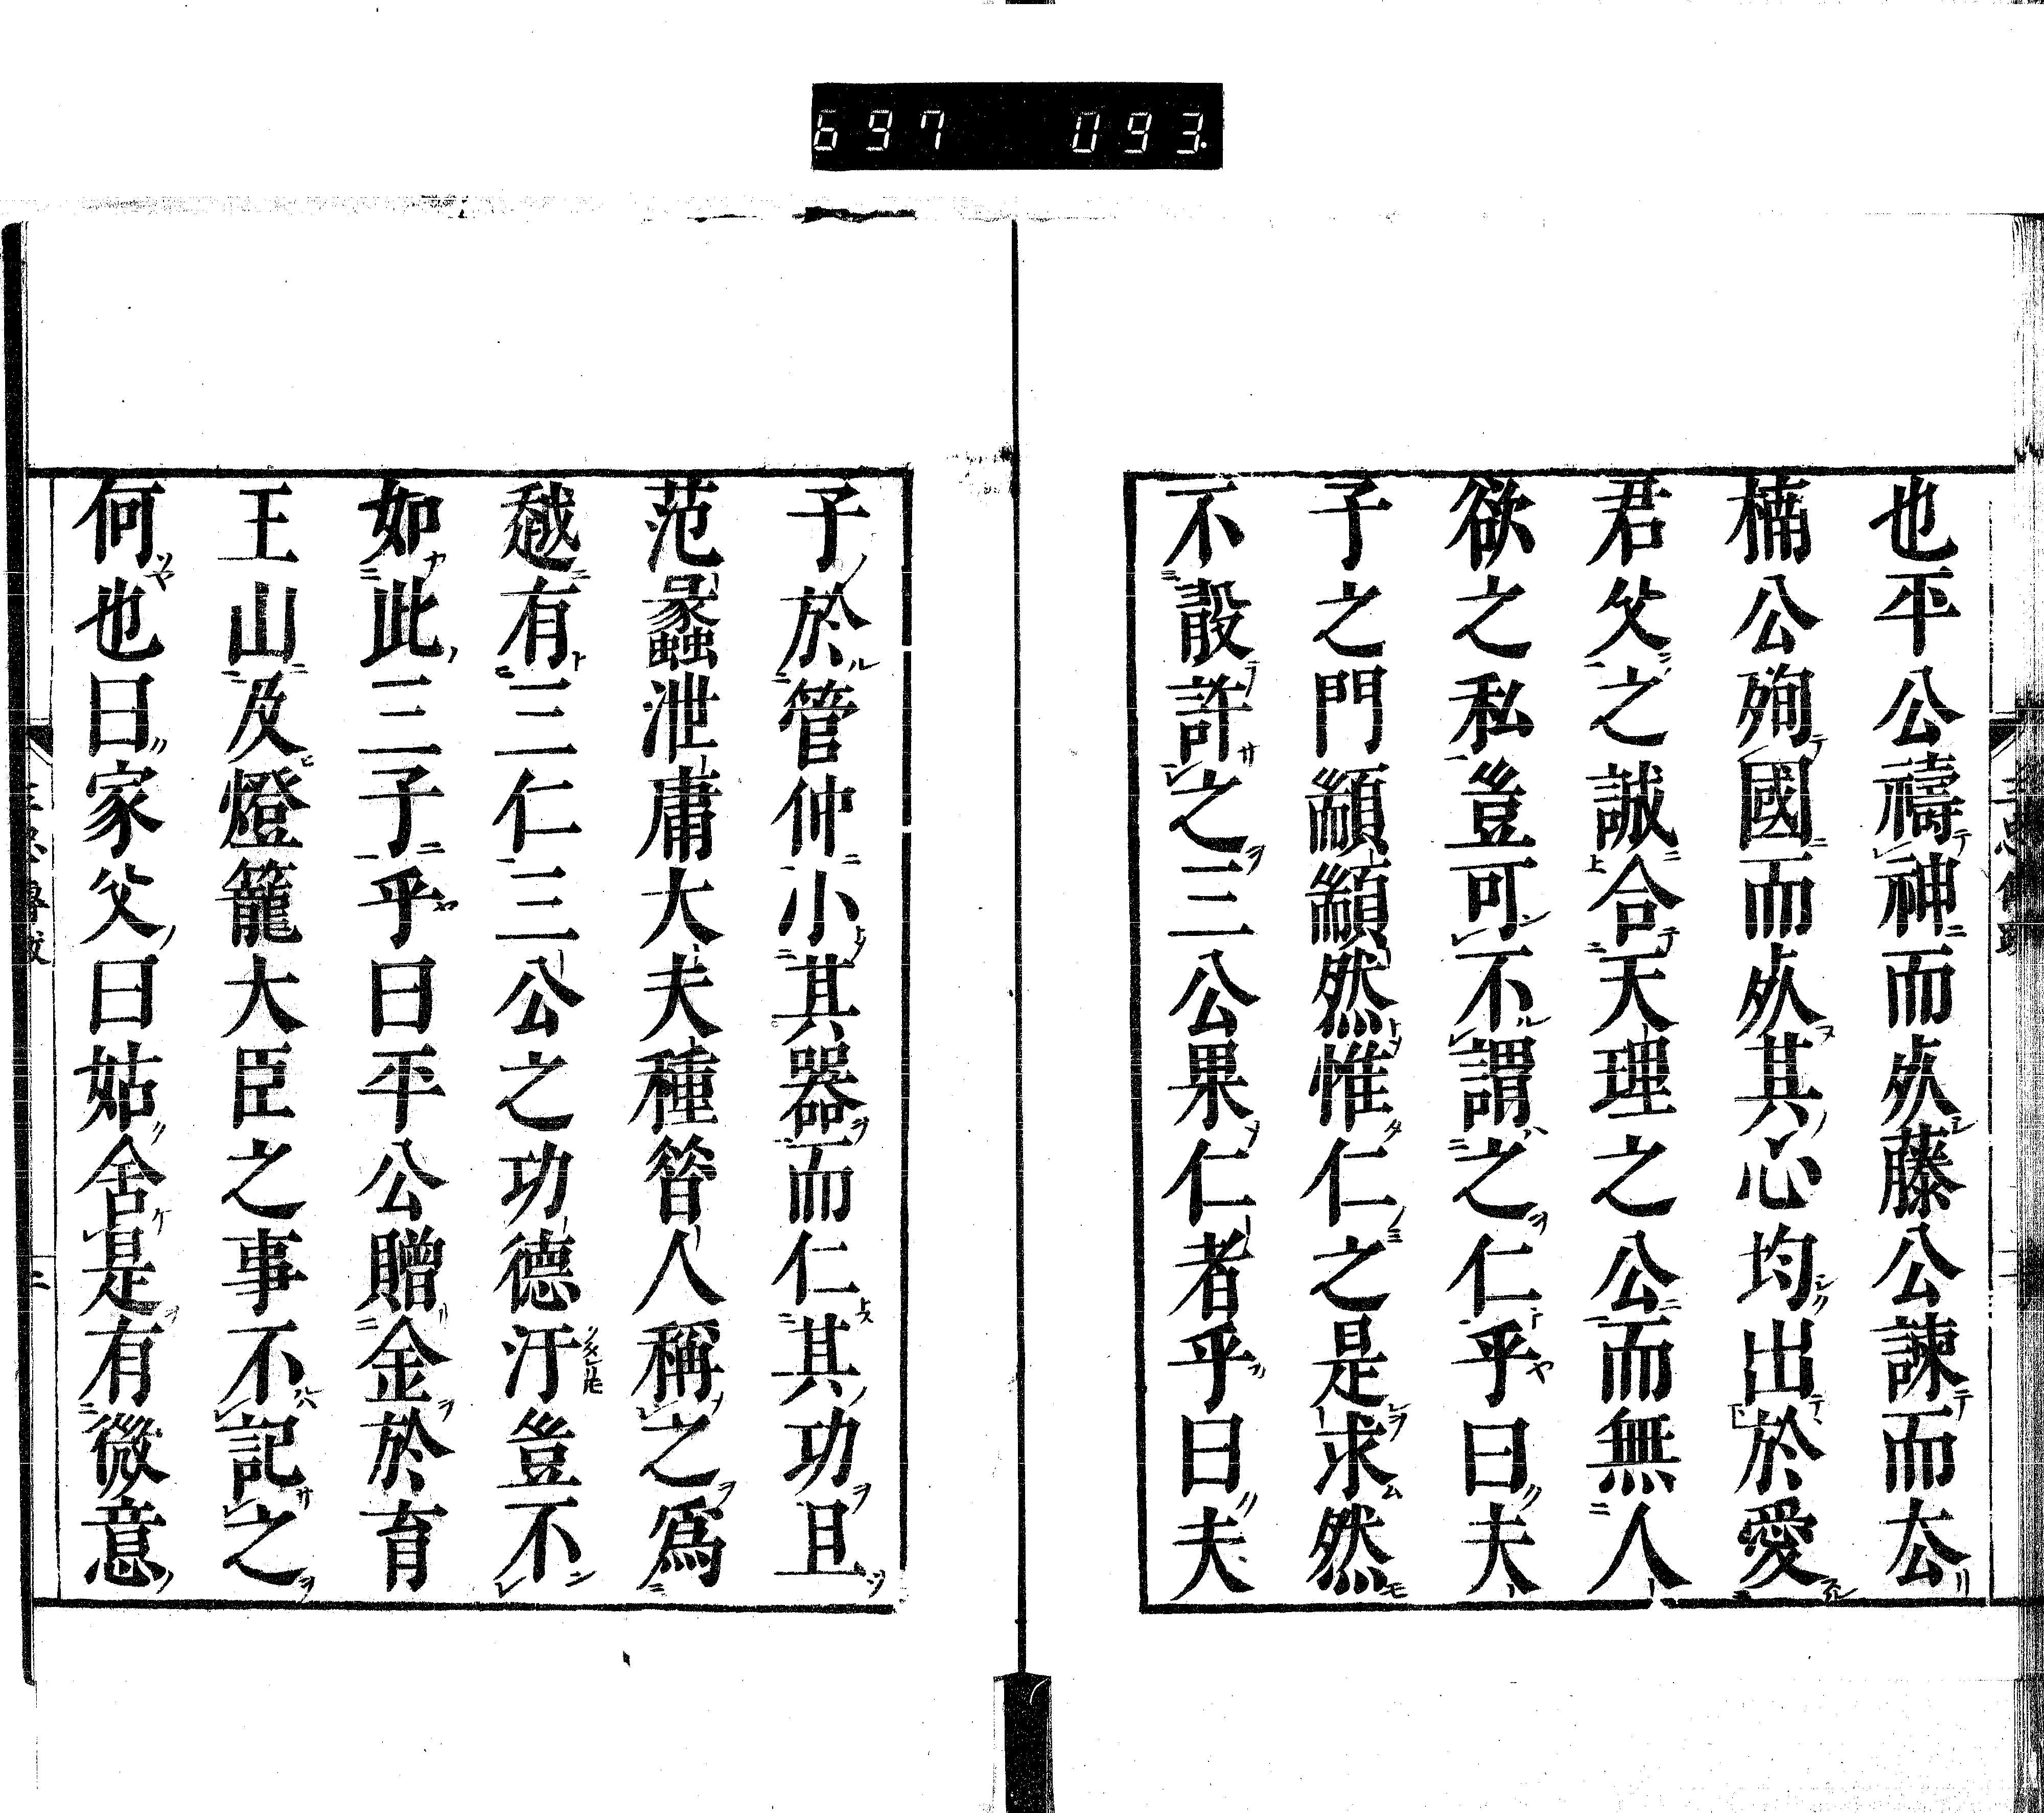 也平公禱神而死藤公諫而去
楠公殉國而死其心均出於愛
君父之誠合天理之公而無人
欲之私豈可不謂之仁乎曰夫
子之門顓顓然惟仁之是求然
不殽許之三公果仁者乎曰夫
子於管仲小其器而仁其功且
范蠡泄庸大夫種㫺人稱之爲
越有三仁三公之功德汙豈不
如此三子乎曰平公贈金於育
王山及燈籠大臣之事不記之
何也曰家父曰姑舍是有微意
二
697 093